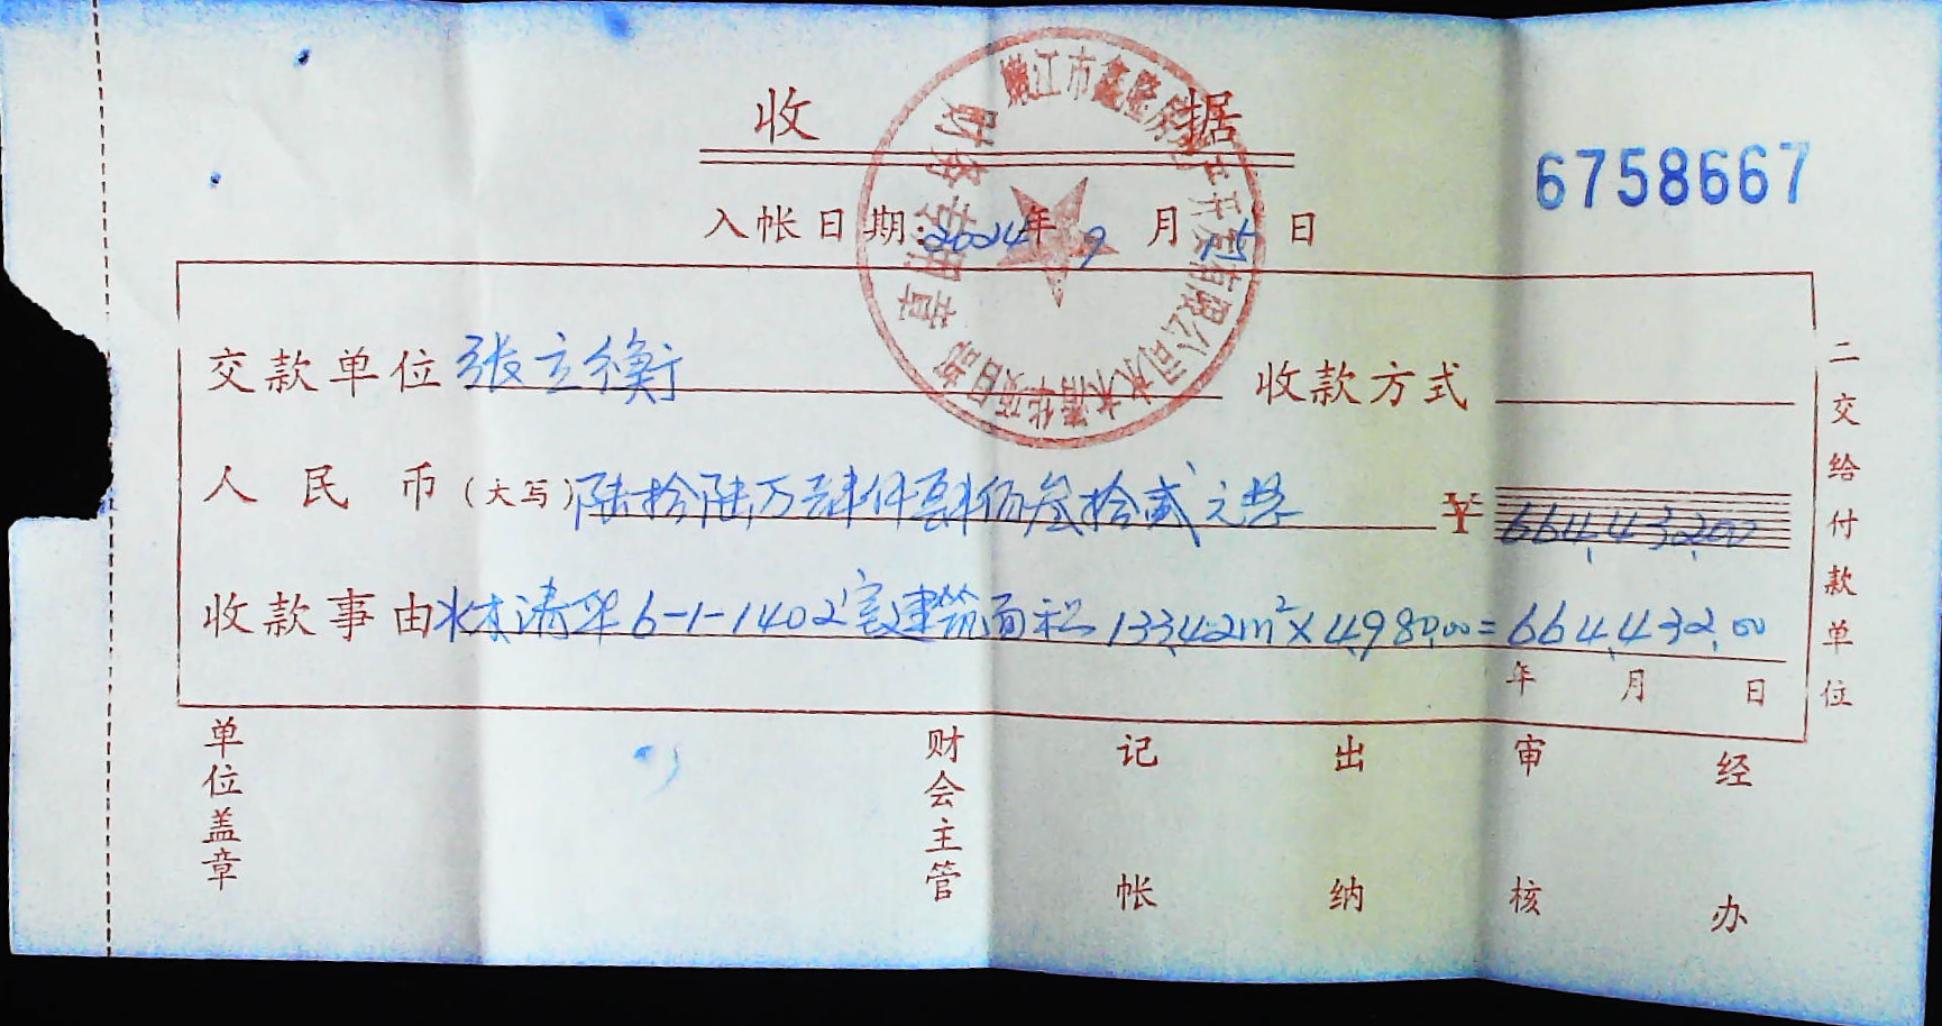 收 据
6758667
入帐日期:2024年9月15日
交款单位 张立衡 收款方式
人民币(大写)陆拾陆万肆仟肆佰叁拾贰元整 ¥ 664,432.00
收款事由 水木清华6-1-1402室建筑面积 133.42m²×4,980.00=664,432.00
年 月 日
二交给付款单位
单位盖章 财会主管 记帐 出纳 审核 经办
嫩江市鑫隆房地产开发有限公司水木清华项目部
财务专用章